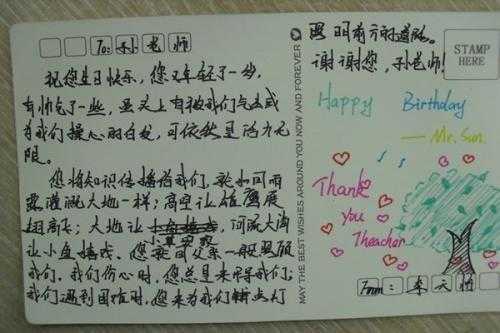 To: 孙老师
祝您生日快乐，您又年轻了一岁，
有帅气了一些，
为我们操心的白发，可依然是活力无
限。
您将知识传播给我们，就如同雨
露滋润大地一样；高空让雄鹰展
翅高飞；大地让
小草安家
河流大海
让小鱼嬉戏。您就同父亲一般照顾
我们，我们伤心时，您总是来
我们遇到困难时，您来为我们
照明前方
谢谢您，孙老师！
STAMP
HERE
Happy Birthday
— Mr. Sun.
Thank
you
Theacher
MAY THE BEST WISHES AROUND YOU NOW AND FOREVER
From: 李天